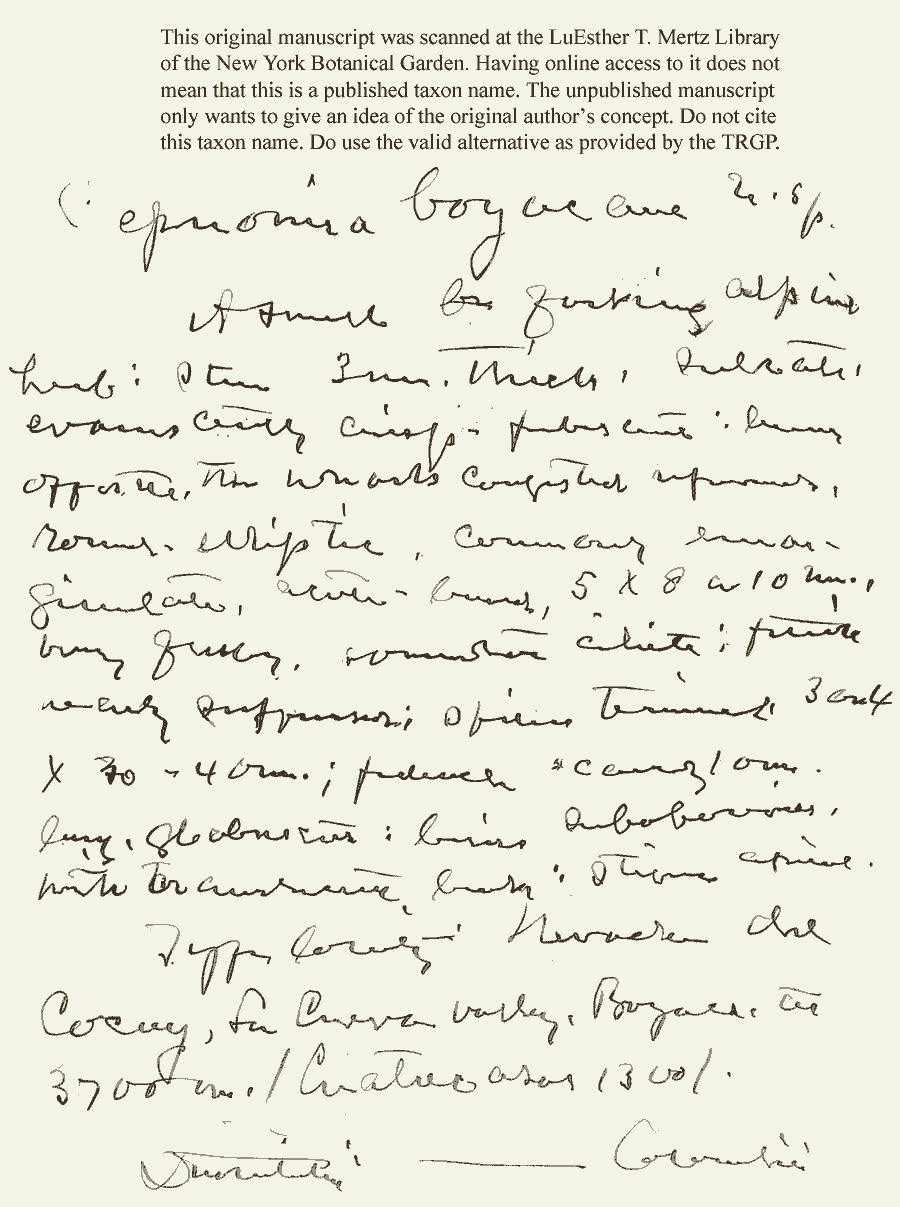 This original manuscript was scanned at the LuEsther T. Mertz Library
of the New York Botanical Garden. Having online access to it does not
mean that this is a published taxon name. The unpublished manuscript
only wants to give an idea of the original author's concept. Do not cite
this taxon name. Do use the valid alternative as provided by the TRGP.
Peperomia boyacana n. sp.
A small forking alpine
herb: stem 3 mm. thick, sulcate,
evanescently crisp-pubescent: leaves
opposite, the upwards congested
round-elliptic, commonly emar-
ginulate, acute-based, 5 X 8 or 10 mm.,
very fleshy, somewhat ciliate; petiole
nearly suppressed; spikes terminal, 3 or 4
X 30 - 40 mm.; peduncle scarcely 10 mm.
long, glabrescent: berries subobovoid,
with beak: stigma apical.
Type locality: Nevada del
Cocuy, La Cueva valley, Boyaca, at
3700 m. / Cuatrecasas 1300/.
Colombia